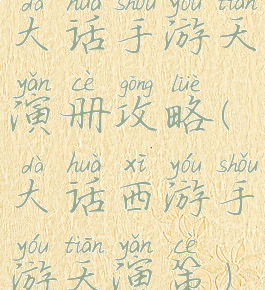 dà huà shǒu yóu tiān
大话手游天
yǎn cè gōng lüè
演册攻略(
dà huà xī yóu shǒu
大话西游手
yóu tiān yǎn cè
游天演策)